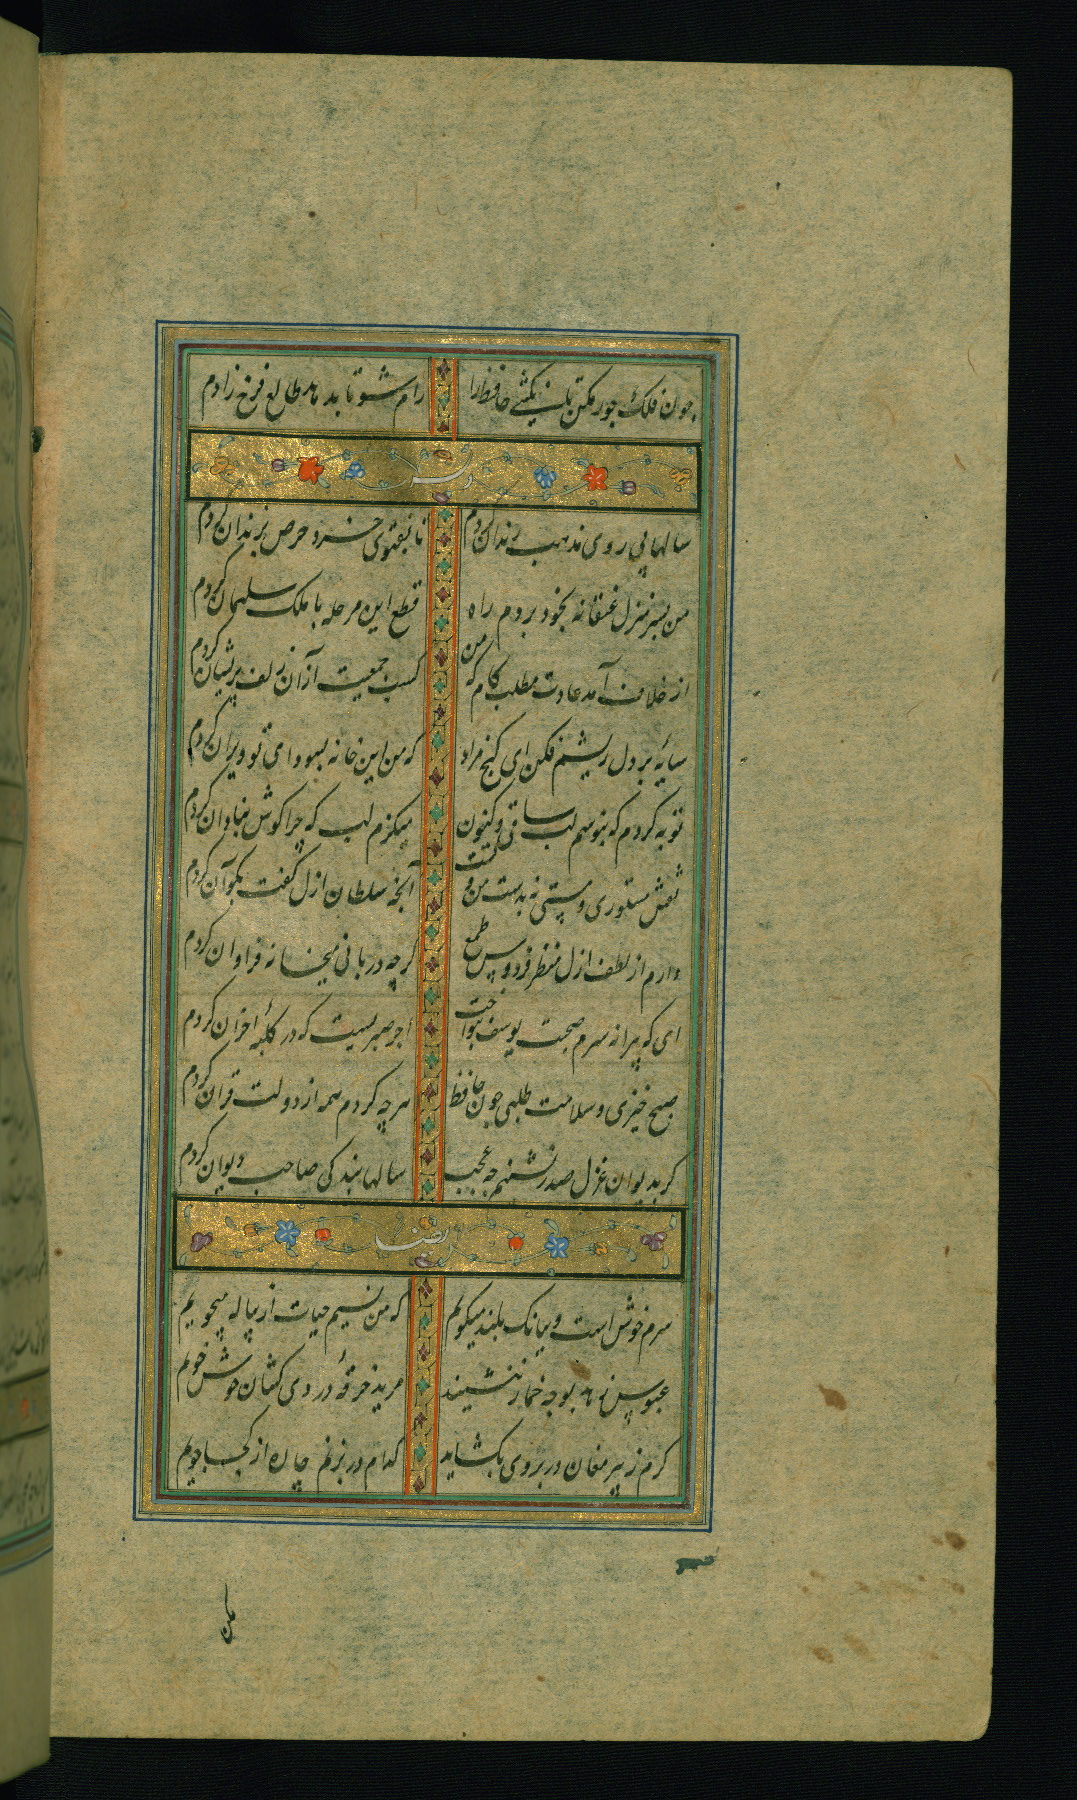 چون فلک جور مکن تا نکشی حافظ را
رام شو تا بدهد طالع فرخ زادم
سالها پی روی مذهب رندان کردم
تا بفتوی خرد حرص بزندان کردم
من بسر منزل عنقا نه بخود بردم راه
قطع این مرحله با ملک سلیمان کردم
از خلاف آمد عادت مطلب کام که من
کسب جمعیت از آن زلف پریشان کردم
سایهٔ بر دل ریشم فکن ای کنج مراد
که من این خانه بسودای تو ویران کردم
توبه کردم که نبوسم لب ساقی و کنون
میکزم لب که چرا کوش بنادان کردم
نقش مستوری و مستی نه بدست من و تست
آنچه سلطان ازل کفت بکو آن کردم
دارم از لطف ازل منظر فردوس طمع
کرچه دربانی میخانه فراوان کردم
ای که پیرانه سرم صحبت یوسف بنواخت
اجر صبریست که در کلبهٔ احزان کردم
صبح خیزی و سلامت طلبی چون حافظ
هرچه کردم همه از دولت قران کردم
کر بدیوان غزل صدر نشینم چه عجب
سالها بندکی صاحب دیوان کردم
ایضا
سرم خوش است و ببانک بلند میکویم
که من نسیم حیات از پیاله میجویم
عبوس زهد بوجه خمار ننشیند
مرید خرقهٔ دردی کشان خوش خویم
کرم نه پیر مغان در بروی بکشاید
کدام در بزنم چاره از کجا جویم